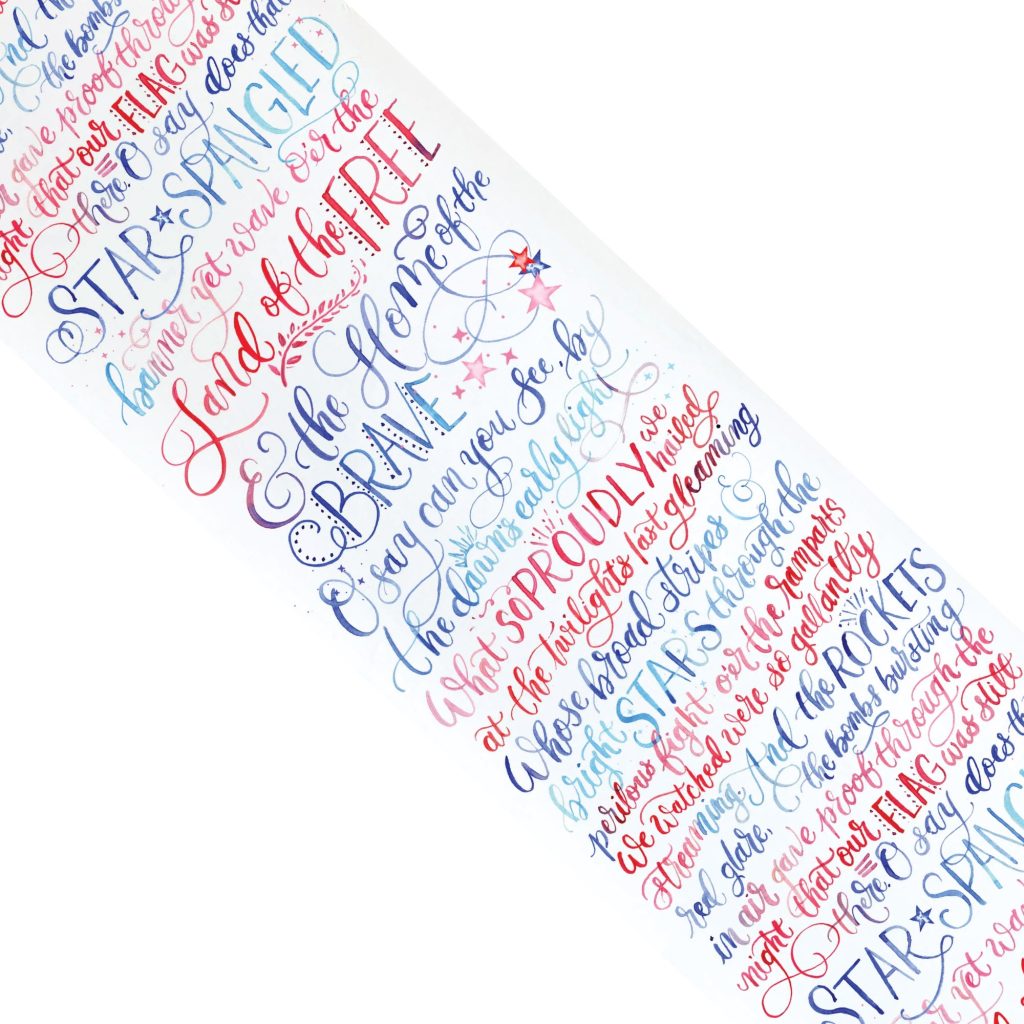 And th
the bombs
gave proof throug
ight that our FLAG was s
there. O say does that
STAR SPANGLED
banner yet wave o'er the
Land of the FREE
& the Home of the
BRAVE
O say can you see, by
the dawn's early light
What so PROUDLY we hailed,
at the twilight's last gleaming
Whose broad stripes &
bright STARS through the
perilous fight o'er the ramparts
We watched were so gallantly
streaming. And the ROCKETS
red glare, the bombs bursting
in air gave proof through the
night that our FLAG was still
there. O say does th
STAR SPANG
er yet wa